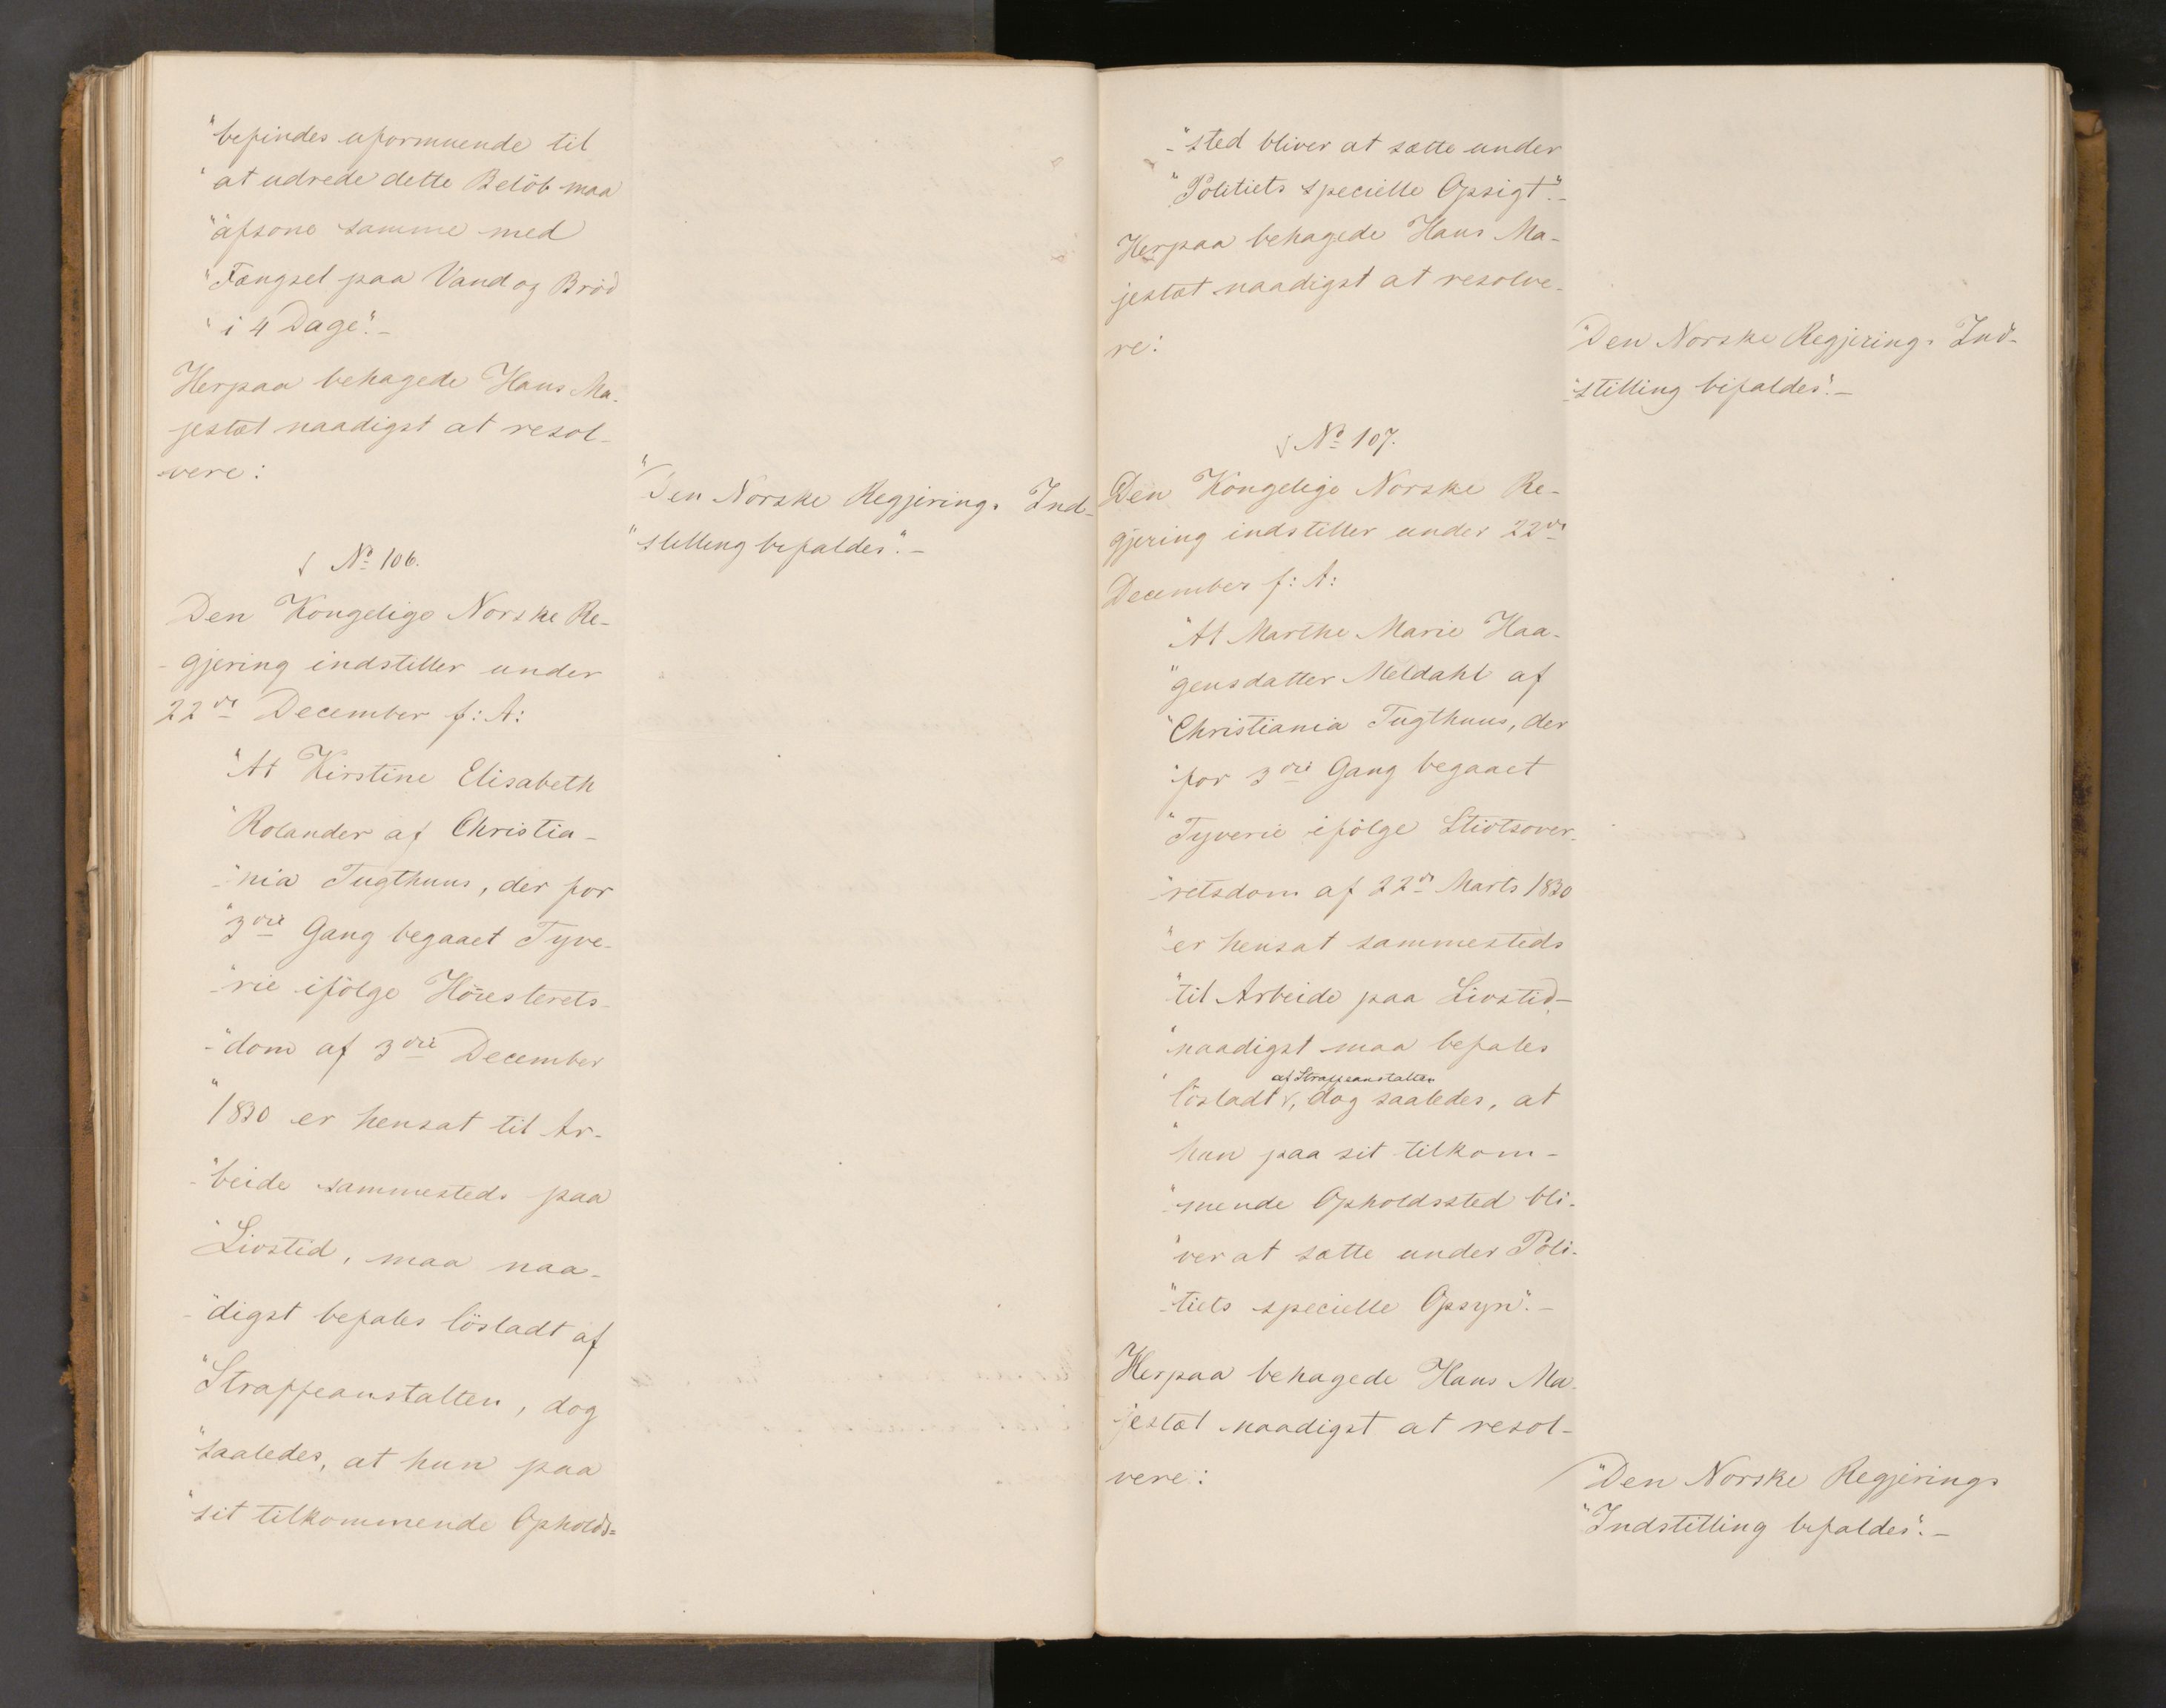 "befindes uformuende til
"at udrede dette Belöb maa
"afsone samme med
"Fængsel paa Vand og Bröd
"i 4 Dage".-
Herpaa behagede Hans Ma-
jestæt naadigst at resol-
vere:
"Den Norske Regjerings Ind-
"stilling bifaldes".-
№ 106.
Den Kongelige Norske Re-
gjering indstiller under
22de December f: A:
"At Kirstine Elisabeth
"Rolander af Christia-
"nia Tugthuus, der for
"3die Gang begaaet Tyve-
"rie ifölge Höiesterets-
"dom af 3die December
"1830 er hensat til Ar-
"beide sammesteds paa
"Livstid, maa naa-
"digst befales lösladt af
"Straffeanstalten, dog
"saaledes, at hun paa
"sit tilkommende Opholds=
"sted bliver at sætte under
"Politiets specielle Opsigt".-
Herpaa behagede Hans Ma-
jestæt naadigst at resolve-
re:
"Den Norske Regjerings Ind-
"stilling bifaldes".-
№ 107.
Den Kongelige Norske Re-
gjering indstiller under 22de
December f: A:
"At Marthe Marie Haa-
"gensdatter Meldahl af
"Christiania Tugthuus, der
"for 3die Gang begaaet
"Tyverie ifölge Stiftsover-
"retsdom af 22de Marts 1830
"er hensat sammesteds
"til Arbeide paa Livstid-
"naadigst maa befales
af Straffeanstalten
"lösladt, dog saaledes, at
"hun paa sit tilkom-
"mende Opholdssted bli-
"ver at sætte under Poli-
"tiets specielle Opsyn".-
Herpaa behagede Hans Ma-
jestæt naadigst at resol-
vere:
"Den Norske Regjerings
"Indstilling bifaldes".-